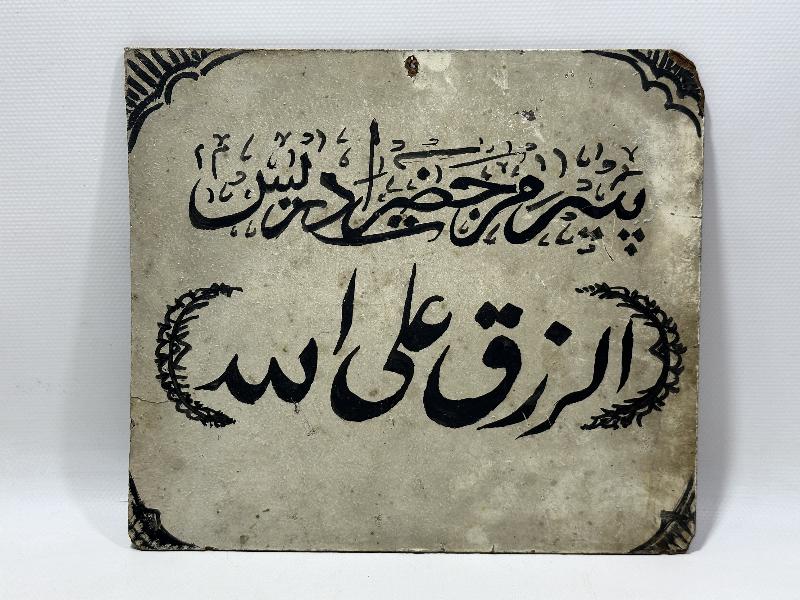 پیرمز حضرت ادریس
الرزق على الله